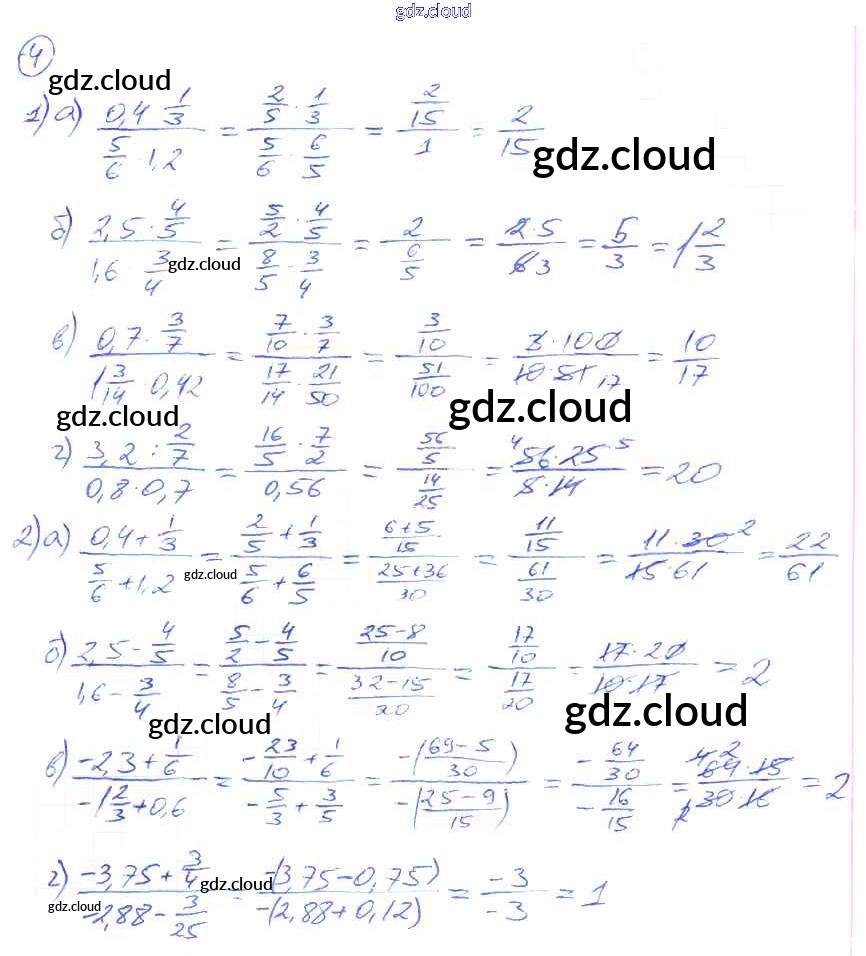 gdz.cloud
④
gdz.cloud
1) а) (0,4 · 1/3)/(5/6 · 1,2) = (2/5 · 1/3)/(5/6 · 6/5) = (2/15)/1 = 2/15
gdz.cloud
б) (2,5 · 4/5)/(1,6 · 3/4) = (5/2 · 4/5)/(8/5 · 3/4) = 2/(6/5) = (2·5)/(6 3) = 5/3 = 1 2/3
gdz.cloud
в) (0,7 · 3/7)/(1 3/14 · 0,42) = (7/10 · 3/7)/(17/14 · 21/50) = (3/10)/(51/100) = (3·100)/(10·51 17) = 10/17
gdz.cloud
gdz.cloud
г) (3,2 : 2/7)/(0,8·0,7) = (16/5 · 7/2)/0,56 = (56/5)/(14/25) = (4 56·25 5)/(5·14) = 20
2) а) (0,4 + 1/3)/(5/6 + 1,2) = (2/5 + 1/3)/(5/6 + 6/5) = ((6+5)/15)/((25+36)/30) = (11/15)/(61/30) = (11·30 2)/(15·61) = 22/61
gdz.cloud
б) (2,5 − 4/5)/(1,6 − 3/4) = (5/2 − 4/5)/(8/5 − 3/4) = ((25−8)/10)/((32−15)/20) = (17/10)/(17/20) = (17·20)/(10·17) = 2
gdz.cloud
gdz.cloud
в) (−2,3 + 1/6)/(−1 2/3 + 0,6) = (−23/10 + 1/6)/(−5/3 + 3/5) = (−((69−5)/30))/(−((25−9)/15)) = (−64/30)/(−16/15) = (4 2 64·15)/(2 30·16) = 2
г) (−3,75 + 3/4)/(−2,88 − 3/25) = (−(3,75−0,75))/(−(2,88+0,12)) = −3/−3 = 1
gdz.cloud
gdz.cloud